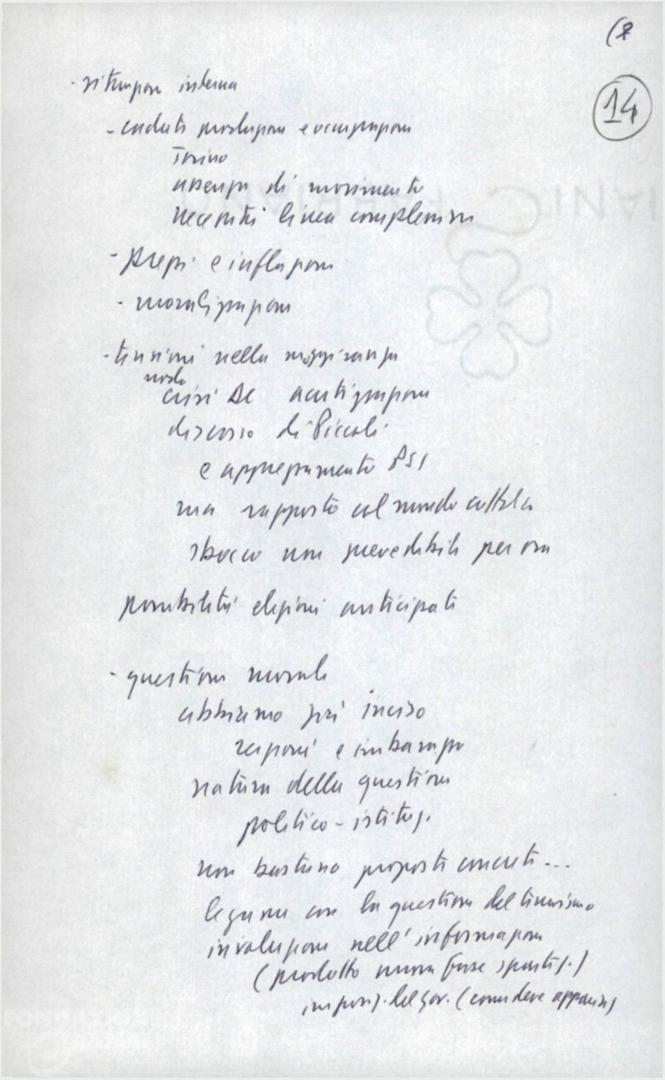 (8
14
- situazione interna
- caduta produzione e occupazione
Torino
assenza di movimento
necessità linea complessiva
- prezzi e inflazione
- moralizzazione
- tensioni nella maggioranza
nodo
crisi DC acutizzazione
discorso di Piccoli
e atteggiamento PSI
ma rapporto col mondo cattolico
sbocco non prevedibile per ora
possibilità elezioni anticipate
- questione morale
abbiamo già inciso
reazioni e imbarazzo
natura della questione
politico-istituz.
non bastano proposte concrete...
legame con la questione del terrorismo
involuzione nell'informazione
(prodotto nuova fase spartiz.)
imposiz. del gov. (come deve apparire)
FONDAZIONE